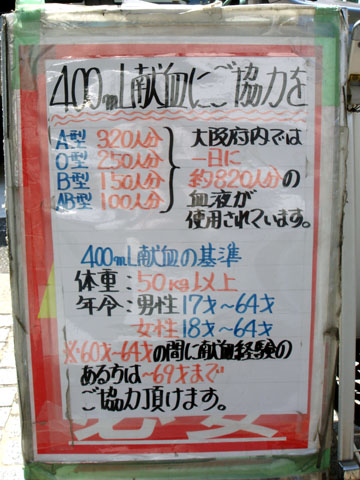 400mL献血にご協力を
A型 320人分
O型 250人分
B型 150人分
AB型 100人分
大阪府内では
一日に
約820人分の
血液が
使用されています。
400mL献血の基準
体重：50kg以上
年令：男性17才～64才
女性18才～64才
※60才～64才の間に献血経験の
ある方は～69才まで
ご協力頂けます。